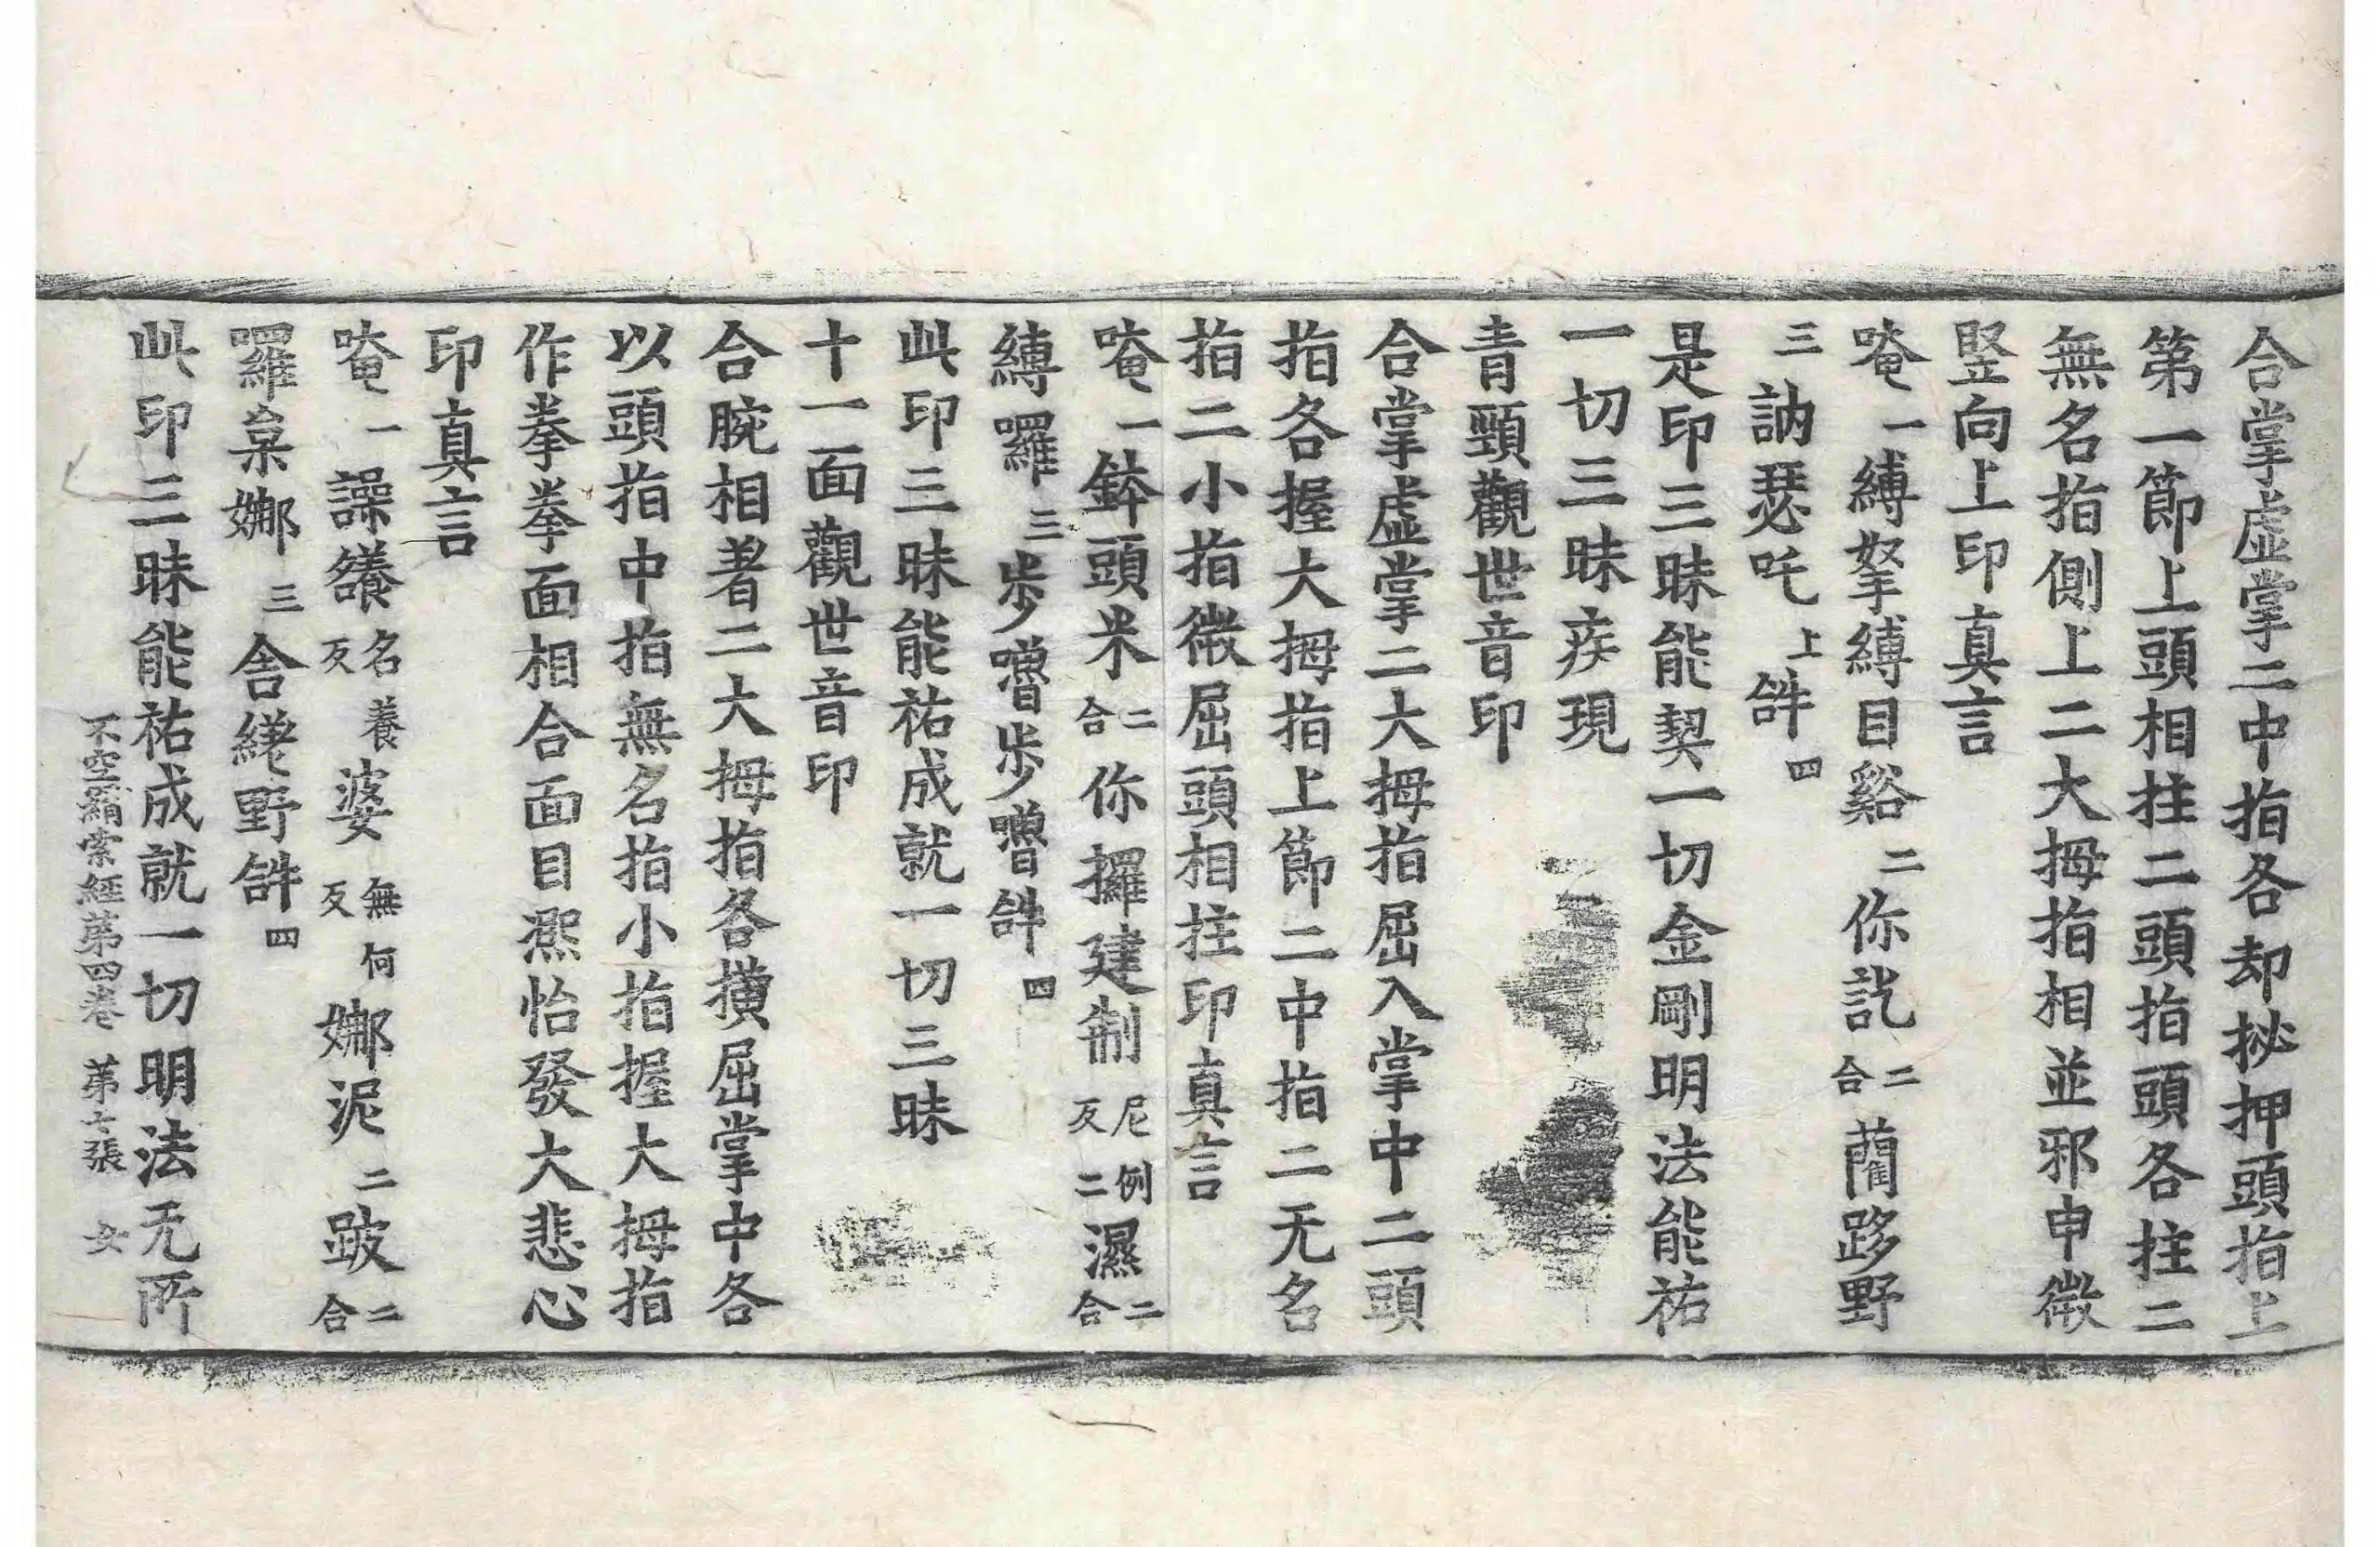 合掌虛掌二中指各却拟押頭指上
第一節上頭相拄二頭指頭各拄二
無名指側上二大拇指相並邪申微
竪向上印真言
唵一縛拏縛目谿二你訖二合蘭路野
三訥瑟吒上𤙖四
是印三昧能契一切金剛明法能祐
一切三昧疾現
青頸觀世音印
合掌虛掌二大拇指屈入掌中二頭
指各握大拇指上節二中指二无名
指二小指微屈頭相拄印真言
唵一鉢頭米二合你攞建制尼例反二濕二合
縛囉三步嚕步嚕𤙖四
此印三昧能祐成就一切三昧
十一面觀世音印
合腕相著二大拇指各撗屈掌中各
以頭指中指無名指小指握大拇指
作拳拳面相合面目熈怡發大悲心
印真言
唵一譟名養反婆無何反娜泥二跛二合
囉枲娜三舍㘑野𤙖四
此印三昧能祐成就一切明法无所
不空羂索經第四卷 第七張 女